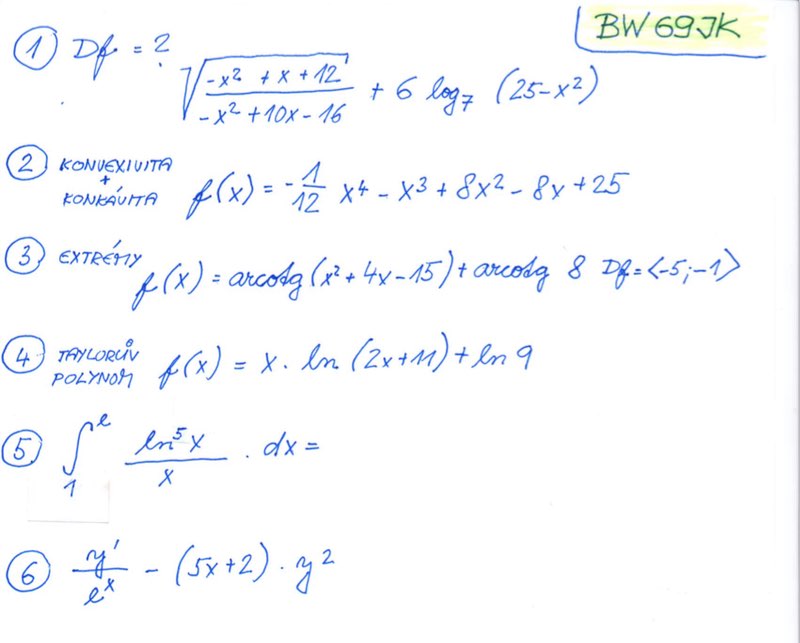 BW69JK
① Df = ? √((-x² + x + 12)/(-x² + 10x - 16)) + 6 log₇ (25 - x²)
② KONVEXIVITA + KONKÁVITA f(x) = -1/12 x⁴ - x³ + 8x² - 8x + 25
③ EXTRÉMY f(x) = arcotg (x² + 4x - 15) + arcotg 8 Df = <-5; -1>
④ TAYLORŮV POLYNOM f(x) = x · ln (2x + 11) + ln 9
⑤ ∫₁ᵉ (ln⁵ x)/x · dx =
⑥ y'/eˣ - (5x + 2) · y²